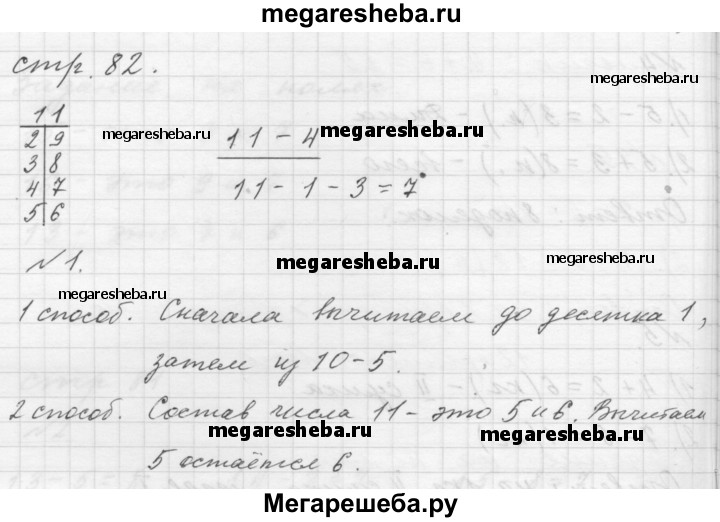 megaresheba.ru
стр. 82.
megaresheba.ru
11
2 9
3 8
4 7
5 6
megaresheba.ru
11 - 4
megaresheba.ru
11 - 1 - 3 = 7
megaresheba.ru
№1.
megaresheba.ru
megaresheba.ru
megaresheba.ru
1 способ. Сначала вычитаем до десятка 1,
затем из 10-5.
2 способ. Состав числа 11 - это 5 и 6. Вычитаем
megaresheba.ru
megaresheba.ru
5 остаётся 6.
Мегарешеба.ру